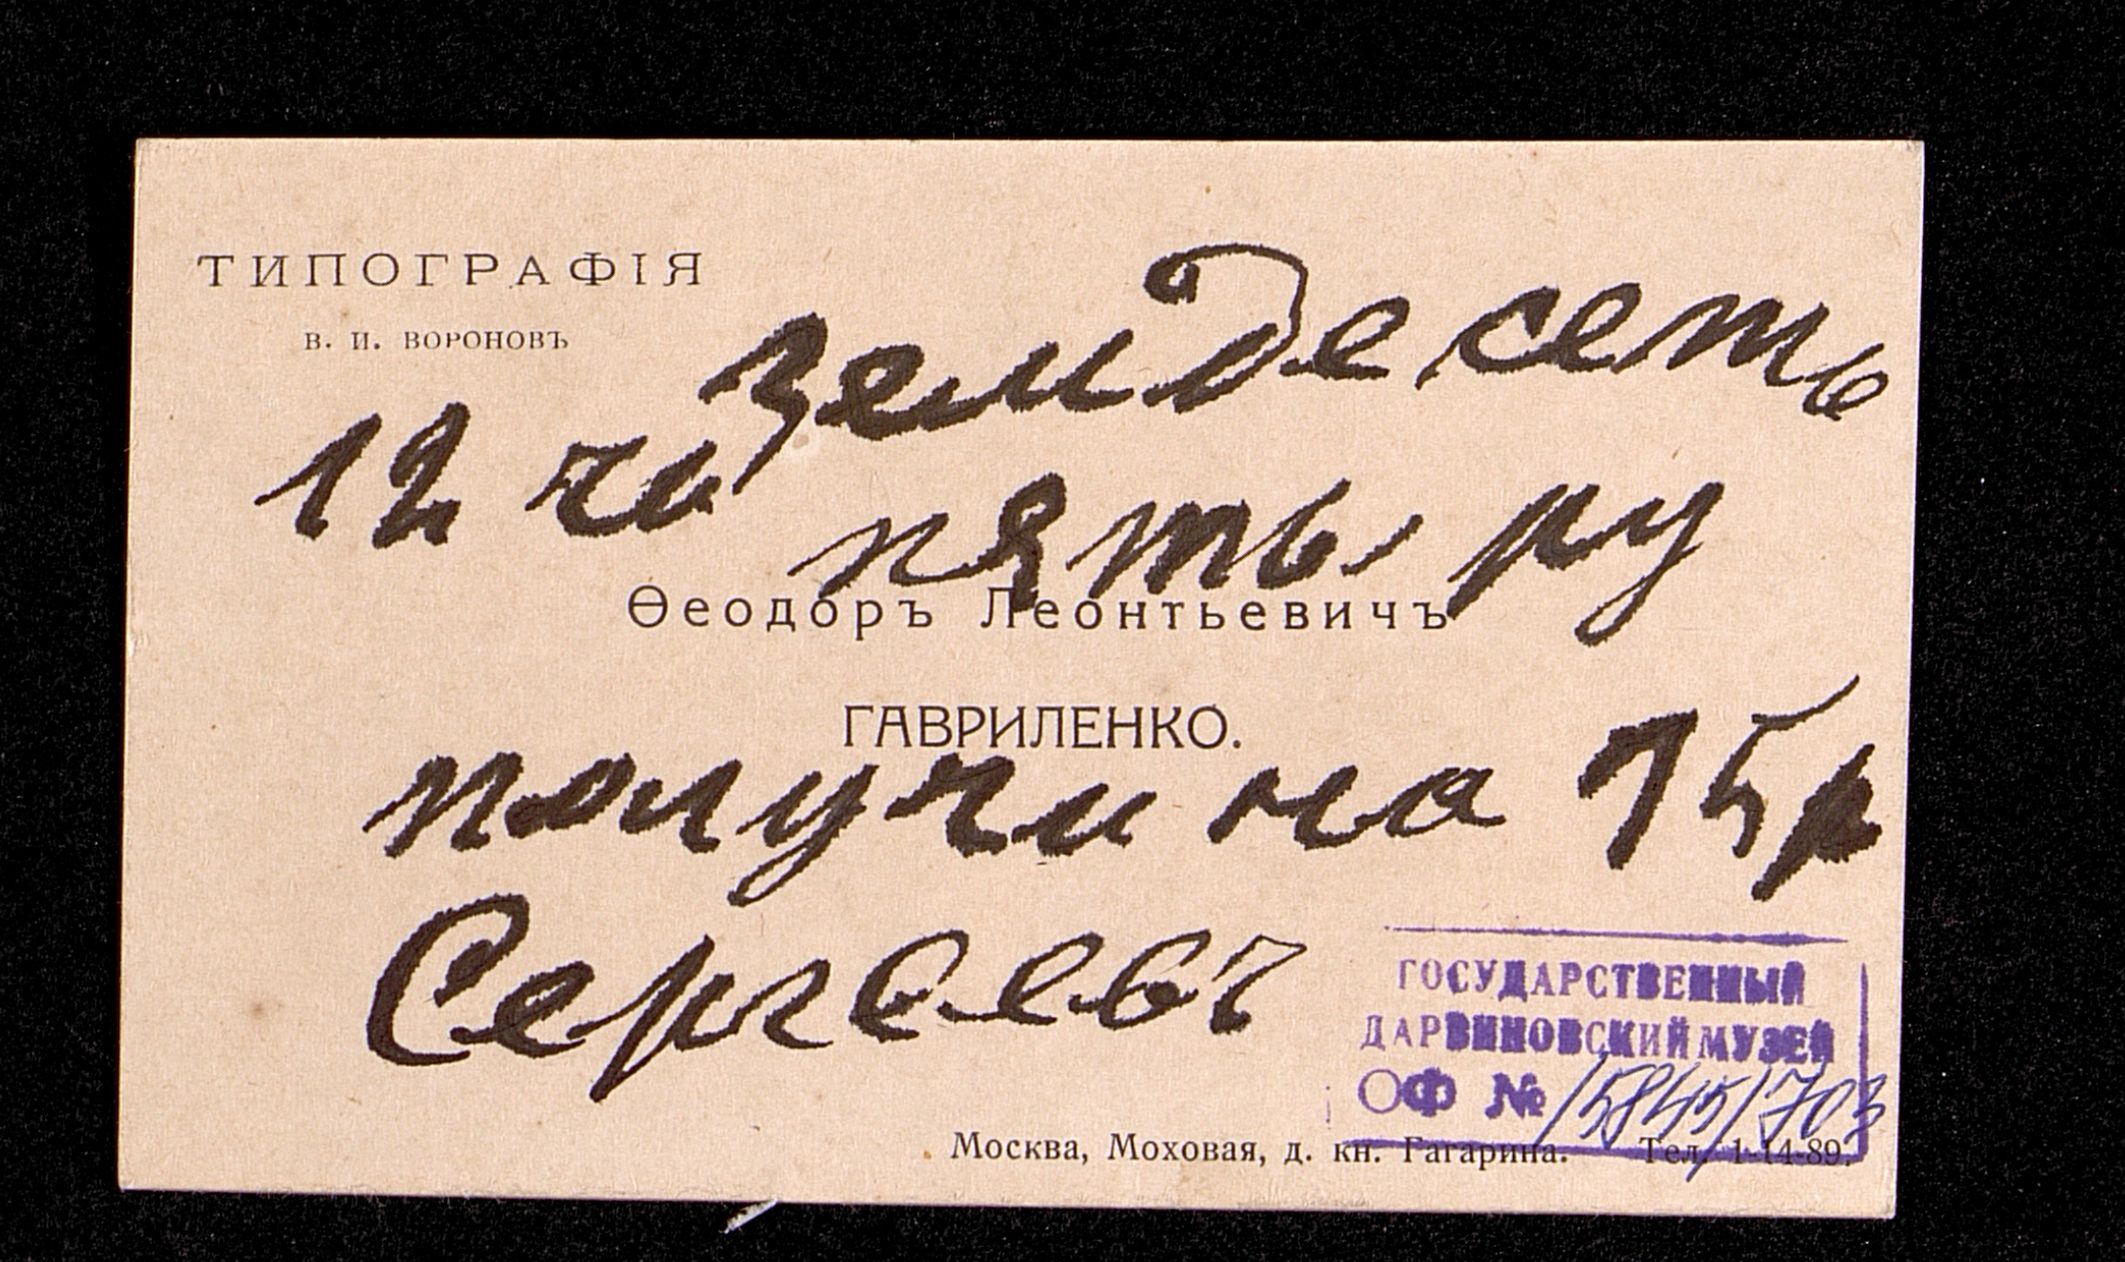 ТИПОГРАФІЯ
В. И. ВОРОНОВЪ
семдесеть
12 ча
пять ру
Ѳеодоръ Леонтьевичъ
ГАВРИЛЕНКО.
получи на 75 р
Сергеевъ
ГОСУДАРСТВЕННЫЙ
ДАРВИНОВСКИЙ МУЗЕЙ
ОФ № 15845/703
Москва, Моховая, д. кн. Гагарина. Тел. 1-14-89.